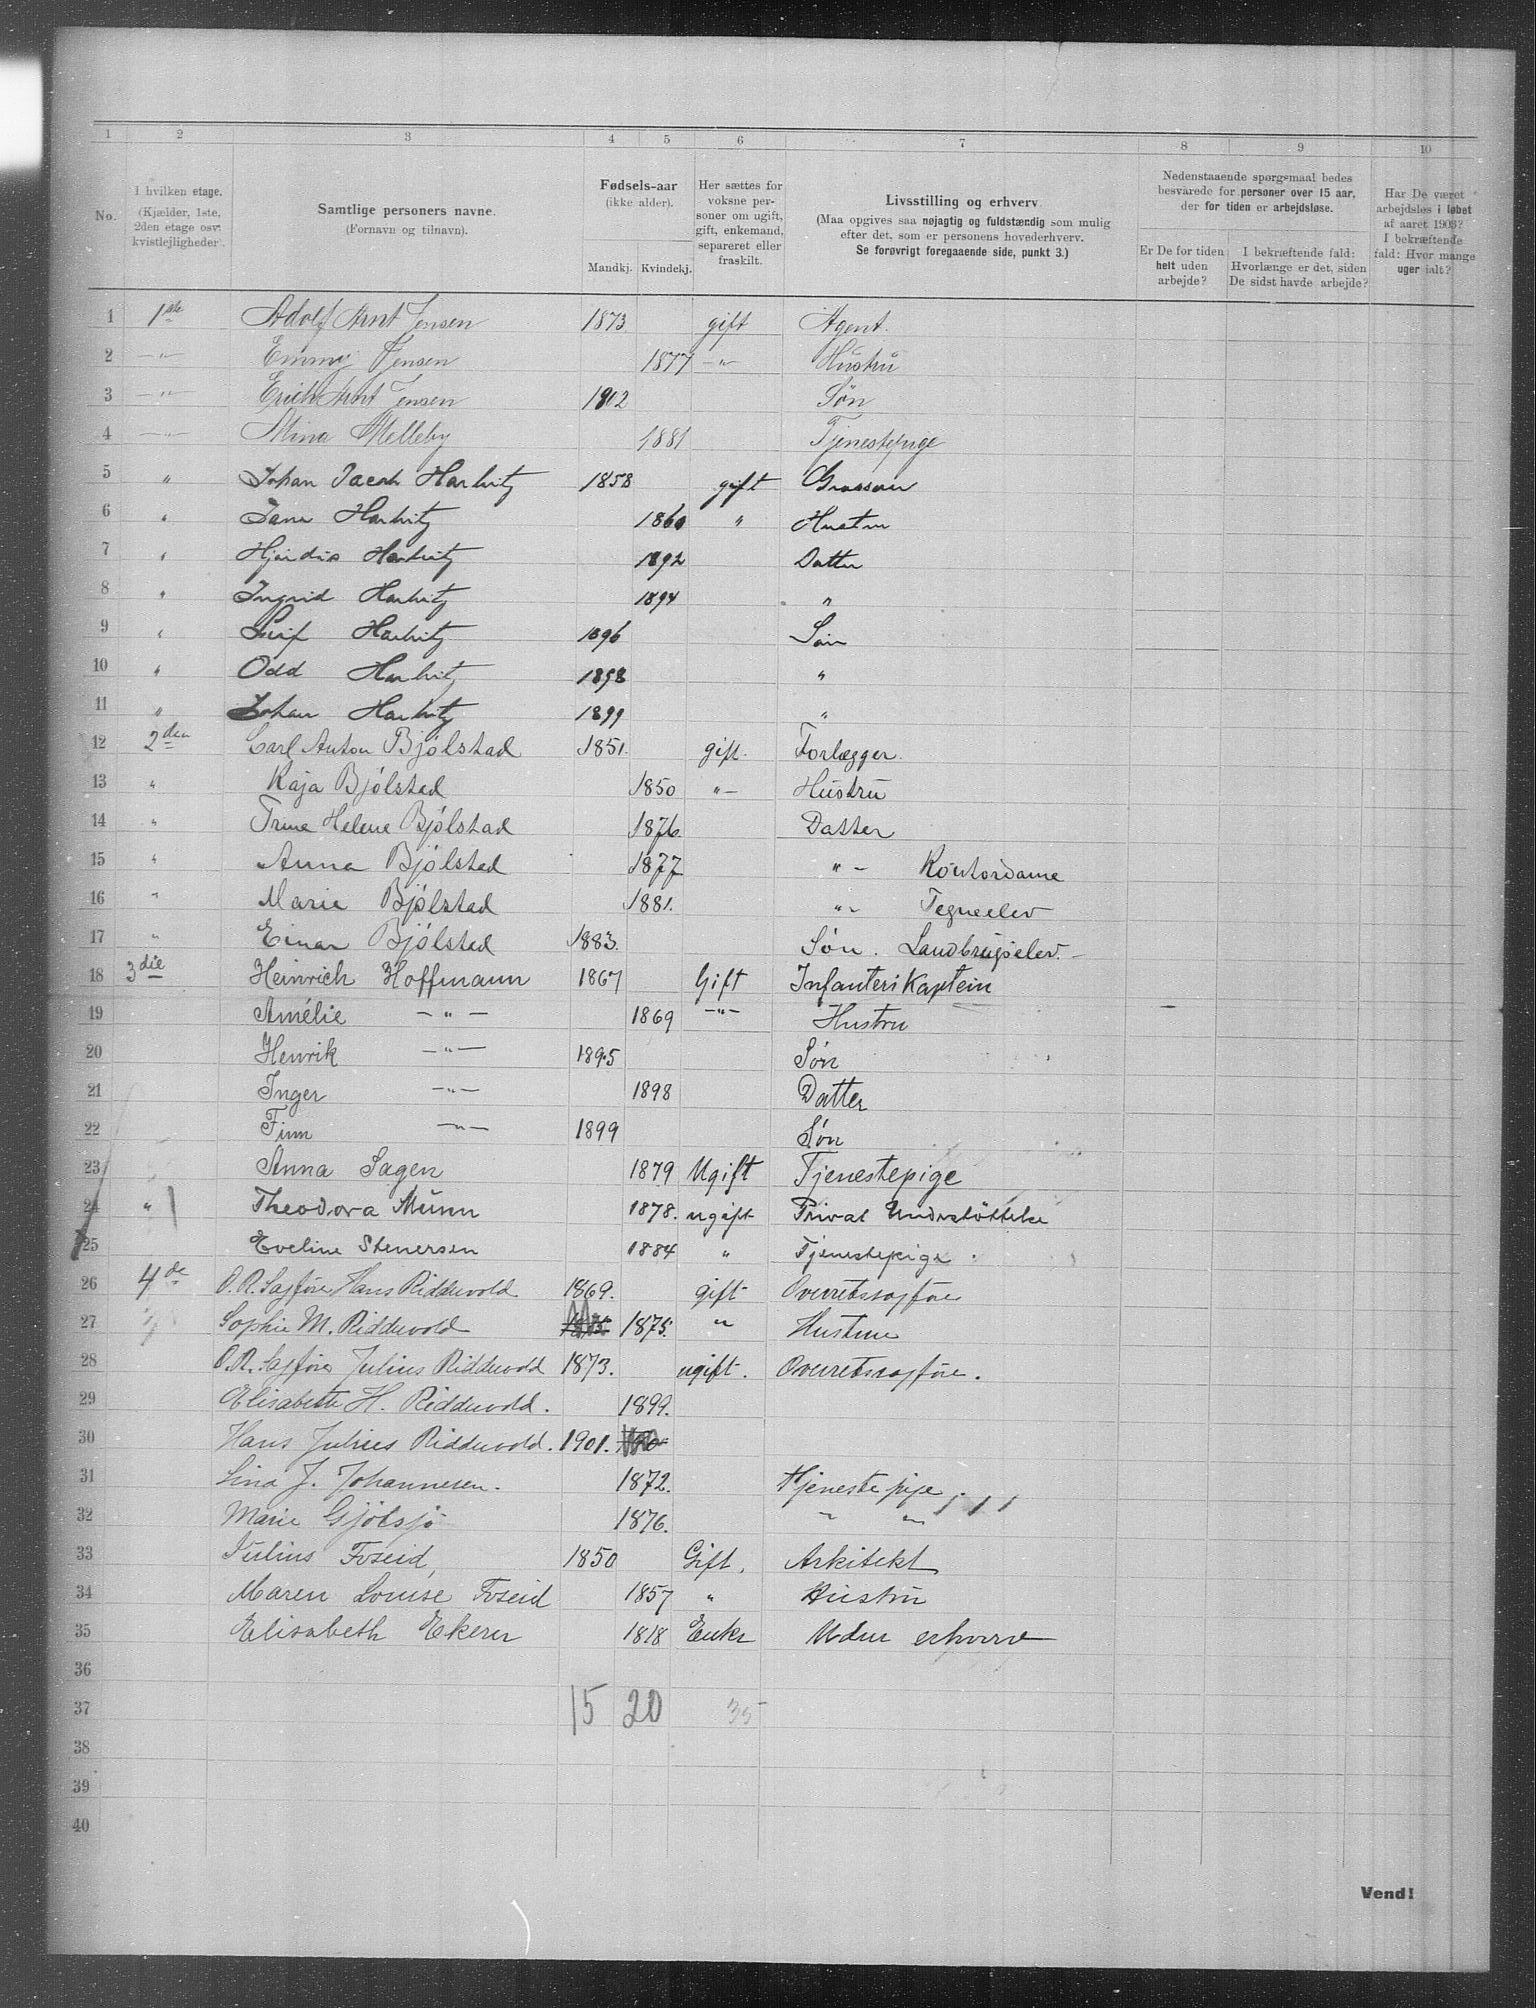 1 2 3 4 5 6 7 8 9 10
No.
I hvilken etage.
(Kjælder, 1ste,
2den etage osv.
kvistlejligheder).
Samtlige personers navne.
(Fornavn og tilnavn).
Fødsels-aar
(ikke alder).
Mandkj. Kvindekj.
Her sættes for
voksne per-
soner om ugift,
gift, enkemand,
separeret eller
fraskilt.
Livsstilling og erhverv
(Maa opgives saa nøjagtig og fuldstændig som mulig
efter det, som er personens hovederhverv.
Se forøvrigt foregaaende side, punkt 3.)
Nedenstaaende spørgsmaal bedes
besvarede for personer over 15 aar,
der for tiden er arbejdsløse.
Er De for tiden
helt uden
arbejde?
I bekræftende fald:
Hvorlænge er det, siden
De sidst havde arbejde?
Har De været
arbejdsløs i løbet
af aaret 1903?
I bekræftende
fald: Hvor mange
uger ialt?
1 1ste Adolf Arnt Jensen 1873 gift Agent.
2 —"— Emmy Jensen 1877 —"— Hustru
3 —"— Erich Arnt Jensen 1902 Søn
4 —"— Mina Melleby 1881 Tjenestepige
5 " Johan Jacob Harbitz 1858 gift Grosserer
6 " Harbitz 1860 " Hustru
7 " Hjørdis Harbitz 1892 Datter
8 " Ingrid Harbitz 1894 "
9 " Leif Harbitz 1896 Søn
10 " Odd Harbitz 1898 "
11 " Johan Harbitz 1899 "
12 2den Carl Anton Bjölstad 1851. gift. Forlægger.
13 " Kaja Bjölstad 1850 "— Hustru
14 " Trine Helene Bjölstad 1876. Datter
15 " Anna Bjölstad 1877 "— Kontordame
16 " Marie Bjölstad 1881. "— Tegneelev
17 " Einar Bjölstad 1883. Søn. Landbrugselev.—
18 3die Heinrich Hoffmann 1867 Gift Infanterikaptein —
19 Amélie —"— 1869 —"— Hustru
20 Henrik —"— 1895 Søn
21 Inger —"— 1898 Datter
22 Finn —"— 1899 Søn
23 Anna Sagen 1879 Ugift Tjenestepige
24 " Theodora Münn 1878. ugift Privat Understöttelse
25 Eveline Stenersen 1884 " Tjenestepige.
26 4de O.R. Sagfører Hans Riddervold 1869. gift Overretssagfører
27 Sophie M. Riddervold 1875. " Hustrue
28 O.R. Sagfører Julius Riddervold 1873. ugift. Overretssagfører.
29 Elisabeth H. Riddervold. 1899.
30 Hans Julius Riddervold. 1901.
31 Lina J. Johannesen. 1872. Tjenestepige.
32 Marie Gjölsjö 1876. " "
33 Julius Foseid, 1850 Gift, Arkitekt
34 Maren Louise Foseid 1857 " Hustru
35 Elisabeth Ekerer 1818 Enke Uden erhverv
36
37 15 20 35
38
39
40
Vend!